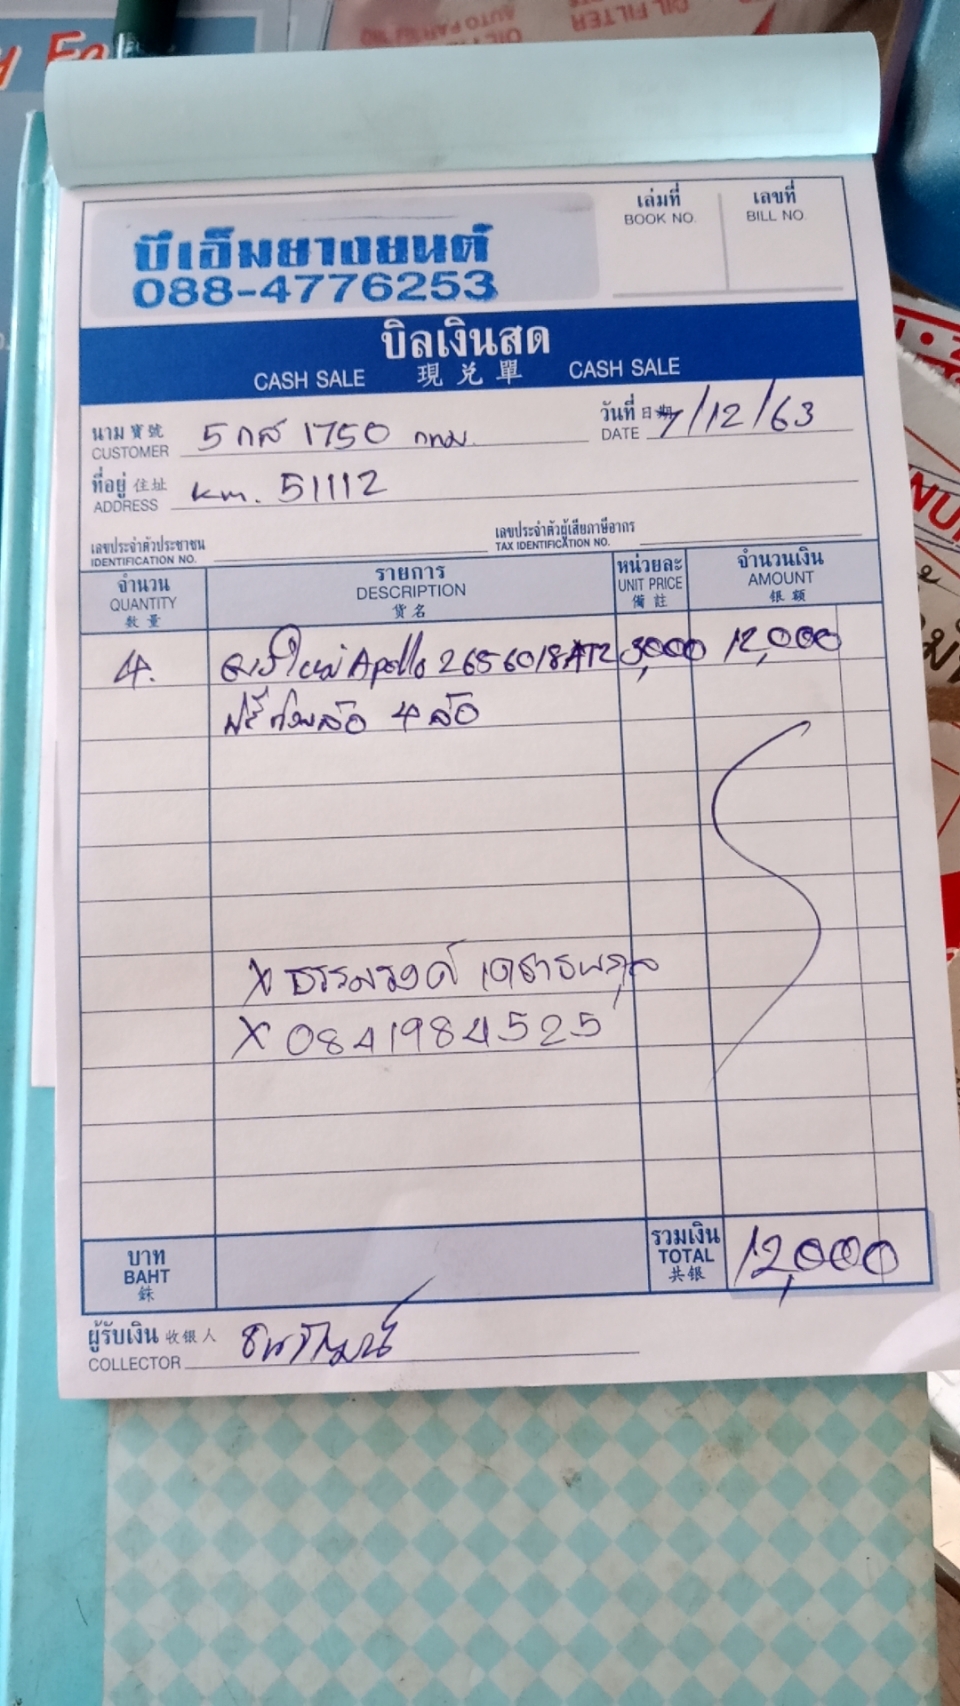 OIL FILTER
AUTO PARTS
เล่มที่
BOOK NO.
เลขที่
BILL NO.
บีเอ็มยางยนต์
088-4776253
บิลเงินสด
CASH SALE 現兑單 CASH SALE
นาม 寶號 5 กส 1750 กทม.
CUSTOMER
วันที่ 日期 7/12/63
DATE
ที่อยู่ 住址 km. 51112
ADDRESS
เลขประจำตัวประชาชน
IDENTIFICATION NO.
เลขประจำตัวผู้เสียภาษีอากร
TAX IDENTIFICATION NO.
จำนวน
QUANTITY
数量
รายการ
DESCRIPTION
货名
หน่วยละ
UNIT PRICE
備註
จำนวนเงิน
AMOUNT
银额
4. Apollo 2656018 3,000 12,000
ฟรี 4 ล้อ
X
X 0841984525
บาท
BAHT
銖
รวมเงิน
TOTAL
共银
12,000
ผู้รับเงิน 收银人
COLLECTOR